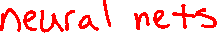 neural nets